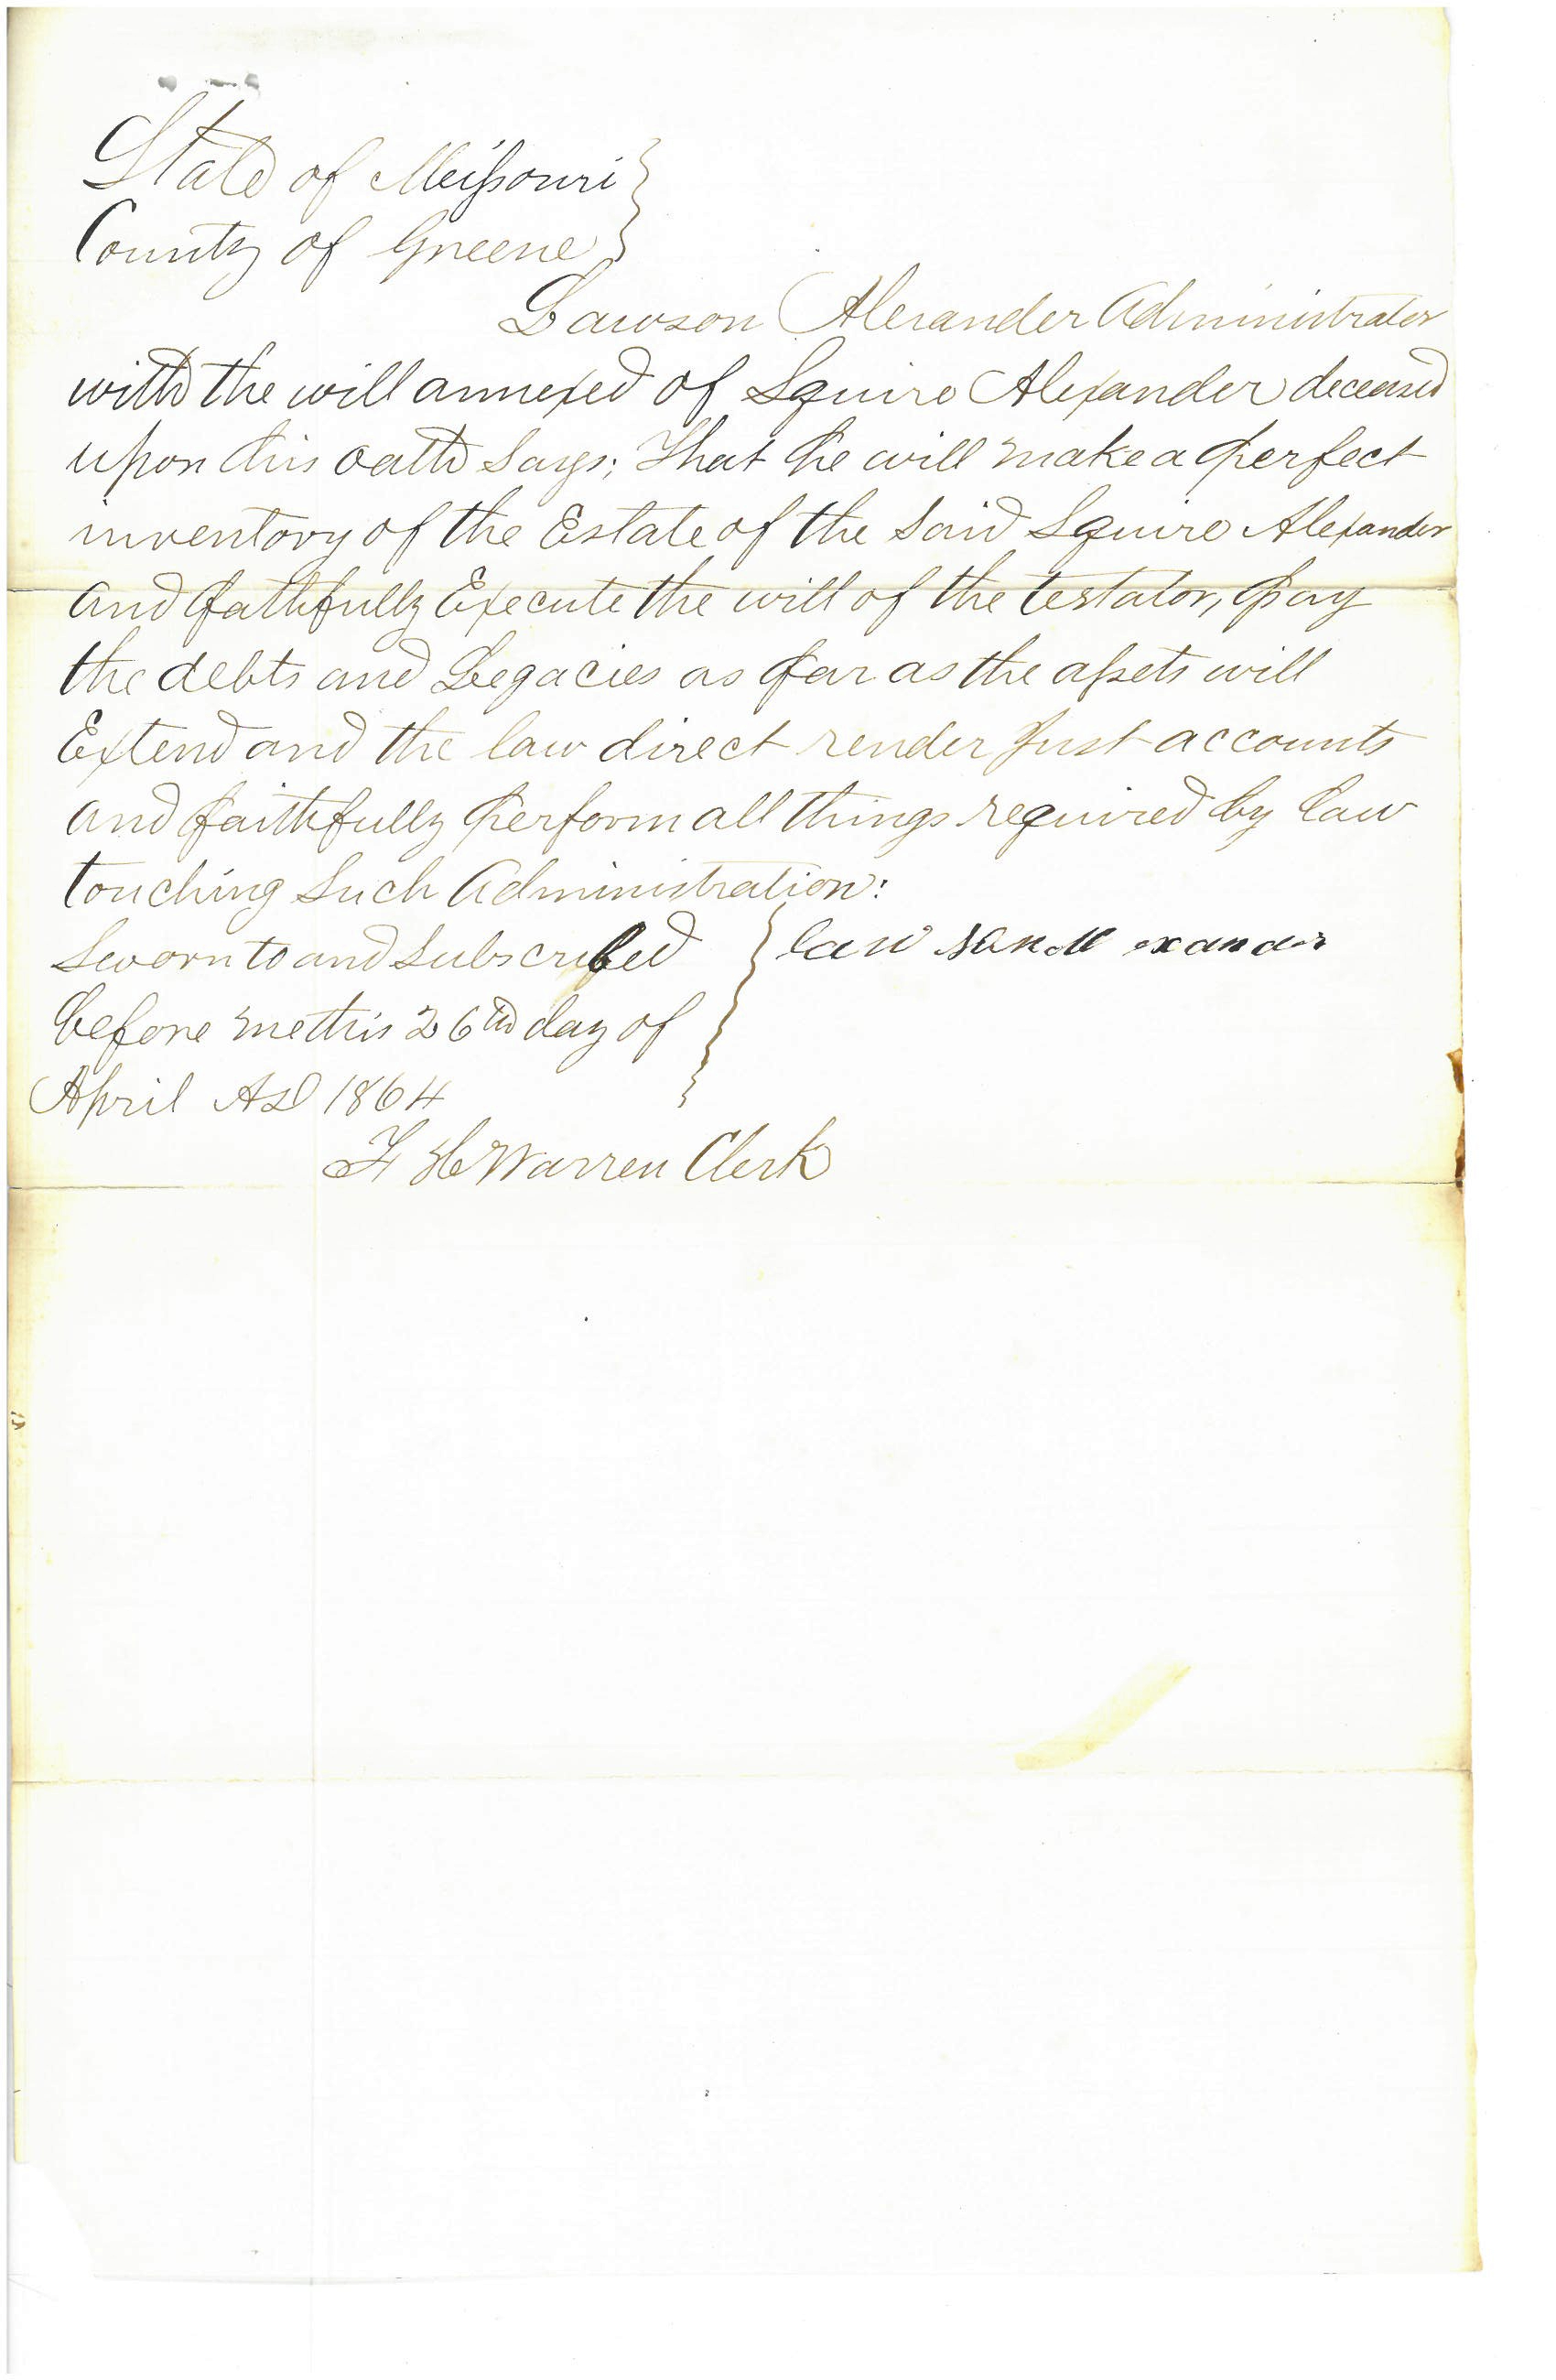 State of Missouri
County of Greene
Lawson Alexander Administrator
with the will annexed of Squire Alexander deceased
upon his oath Says; That he will make a perfect
inventory of the Estate of the Said Squire Alexander
and fathfully Execute the will of the testator, pay
the debts and Legacies as far as the assets will
Extend and the law direct render just accounts
and faithfully perform all things required by law
touching Such Administration:
Sworn to and Subscribed } law son Al exander
before me this 26th day of
April AD 1864
F H Warren Clerk